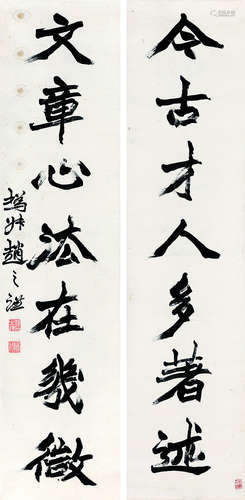 今古才人多著述
文章心法在几微
趙之謙